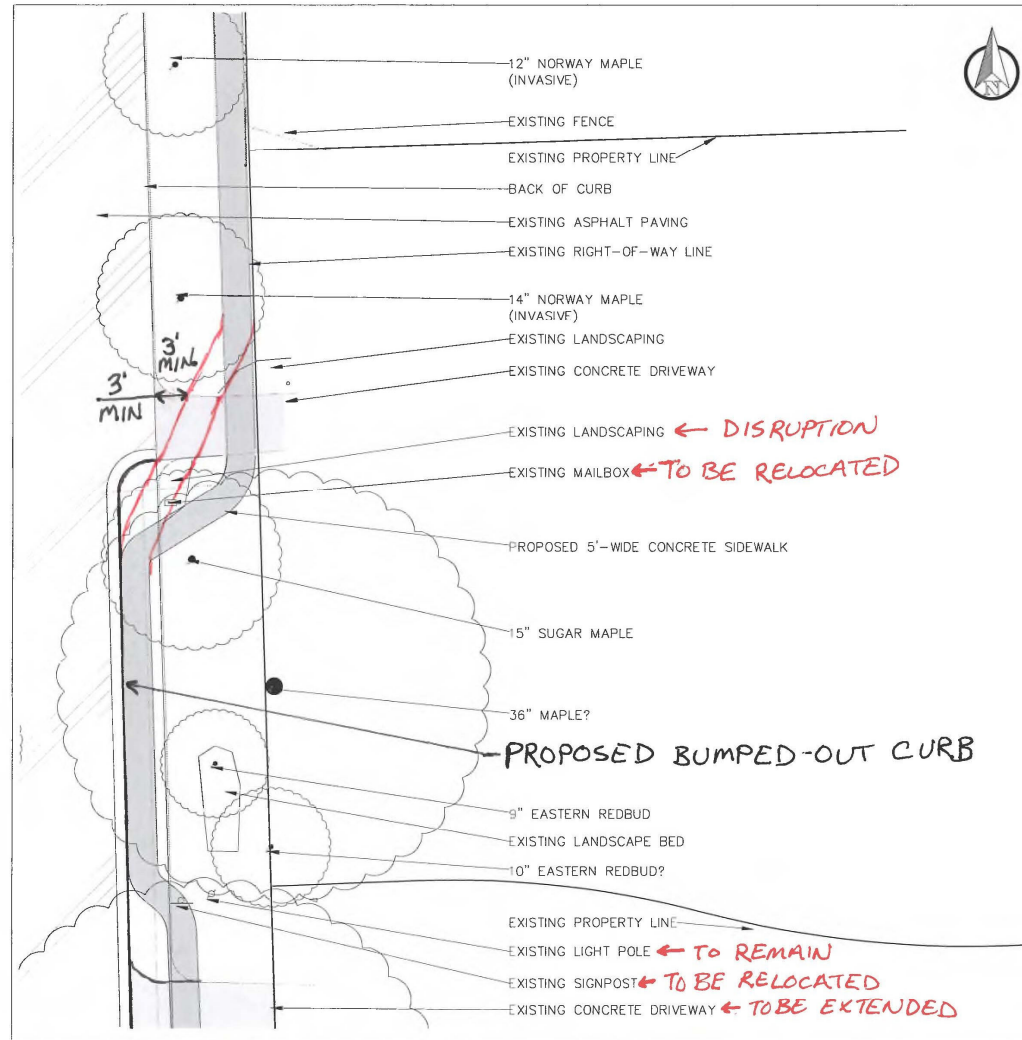 12" NORWAY MAPLE
(INVASIVE)
N
EXISTING FENCE
EXISTING PROPERTY LINE
BACK OF CURB
EXISTING ASPHALT PAVING
EXISTING RIGHT-OF-WAY LINE
14" NORWAY MAPLE
(INVASIVE)
EXISTING LANDSCAPING
3'
MIN
3'
MIN
EXISTING CONCRETE DRIVEWAY
EXISTING LANDSCAPING ← DISRUPTION
EXISTING MAILBOX ← TO BE RELOCATED
PROPOSED 5'-WIDE CONCRETE SIDEWALK
15" SUGAR MAPLE
36" MAPLE?
PROPOSED BUMPED-OUT CURB
9" EASTERN REDBUD
EXISTING LANDSCAPE BED
10" EASTERN REDBUD?
EXISTING PROPERTY LINE
EXISTING LIGHT POLE ← TO REMAIN
EXISTING SIGNPOST ← TO BE RELOCATED
EXISTING CONCRETE DRIVEWAY ← TO BE EXTENDED